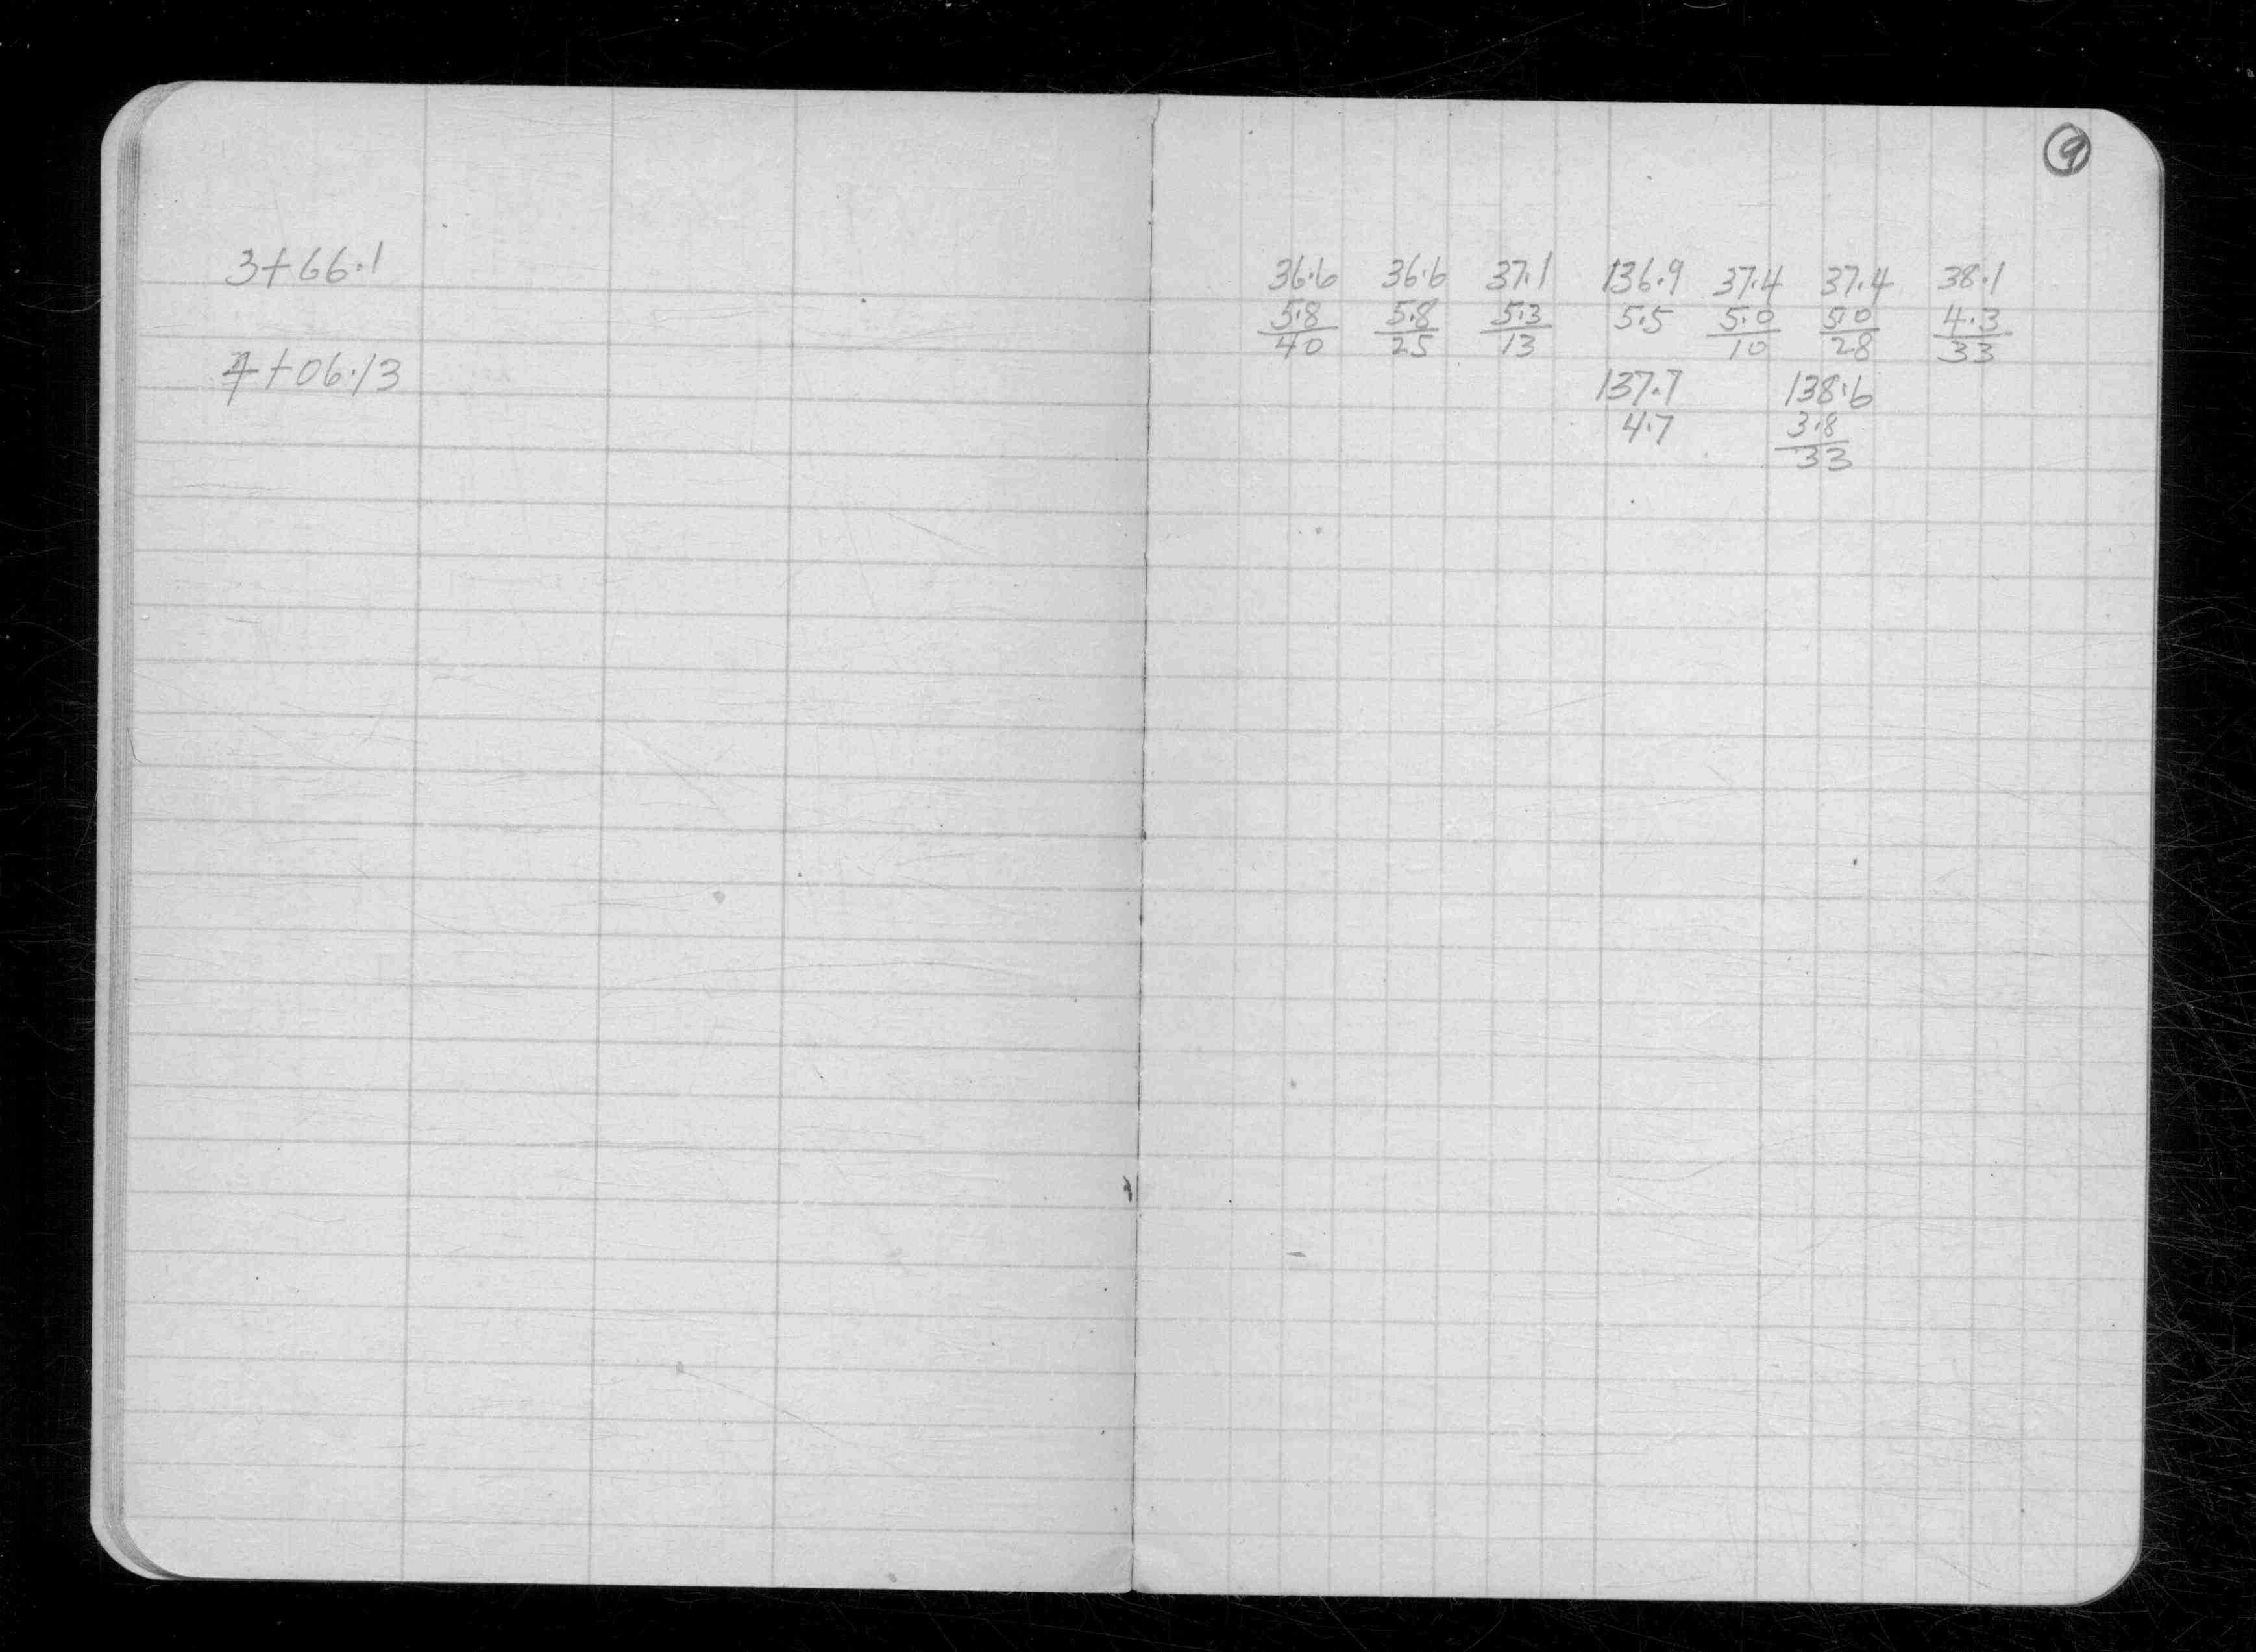 9
3+66.1
36.6 36.6 37.1 136.9 37.4 37.4 38.1
5.8 5.8 5.3 5.5 5.0 5.0 4.3
40 25 13 10 28 33
4+06.13
137.7 138.6
4.7 3.8
33